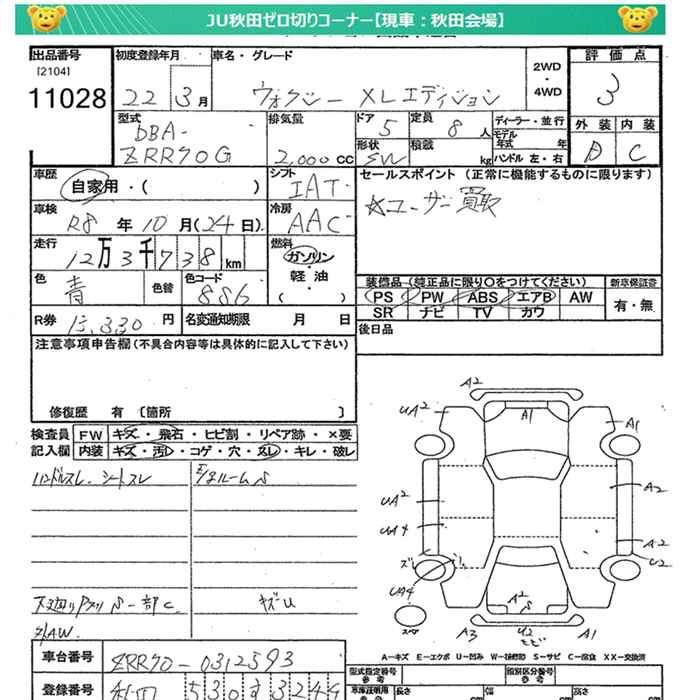 JU秋田ゼロ切りコーナー【現車：秋田会場】
出品番号
[2104]
11028
初度登録年月
22 3月
車名・グレード
ヴォクシー XLエディション
2WD
・
4WD
評価点
3
外装 内装
D C
型式
DBA-
ZRR70G
排気量
2,000cc
ドア
5
定員
8人
形状
SW
積載
kg
ディーラー・並行
モデル
年式 年
ハンドル 左・右
車歴
自家用・( )
シフト
IAT
車検
R8年10月(24日)
冷房
AAC
セールスポイント (正常に機能するものに限ります)
☆ユーザー買取
走行
12万3千738km
燃料
ガソリン
・
軽油
( )
色
青
色替
色コード
8S6
装備品 (純正品に限り○をつけてください)
PS PW ABS エアB AW
SR ナビ TV カワ
新車保証書
有・無
R券
13,330円
名変通知期限 月 日
後日品
注意事項申告欄(不具合内容等は具体的に記入して下さい)
修復歴 有 〔箇所 〕
検査員
記入欄
FW キズ・飛石・ヒビ割・リペア跡・×要
内装 キズ・汚れ・コゲ・穴・スレ・キレ・破レ
ハンドルスレ. シートスレ
下廻りサビ S 一部C
キズU
A2
UA2
A1
A1
UA2
A2
UA4
A2
ズレ
U2
UA4
A2
S
スペア
A3
U2
A1
A－キズ E－エクボ U－凹み W－補修跡 S－サビ C－腐食 XX－交換済
車台番号
ZRR70-0312593
登録番号
型式指定番号
参考
類別区分番号
参考
車庫証明用
参考
長さ
幅
高さ